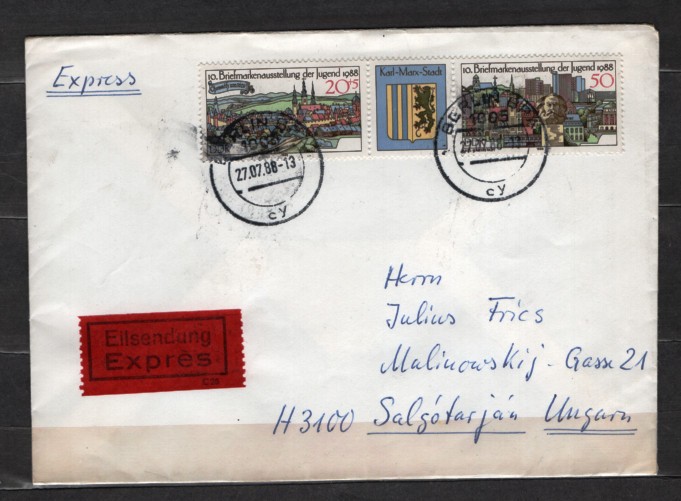 Express
10. Briefmarkenausstellung der Jugend 1988
20+5
Karl-Marx-Stadt
10. Briefmarkenausstellung der Jugend 1988
50
BERLIN
1085
27.07.88-13
cy
BERLIN
1085
27.07.88-13
cy
Herrn
Julius Fries
Malinowskij-Gasse 21
H3100 Salgótarján Ungarn
Eilsendung
Exprès